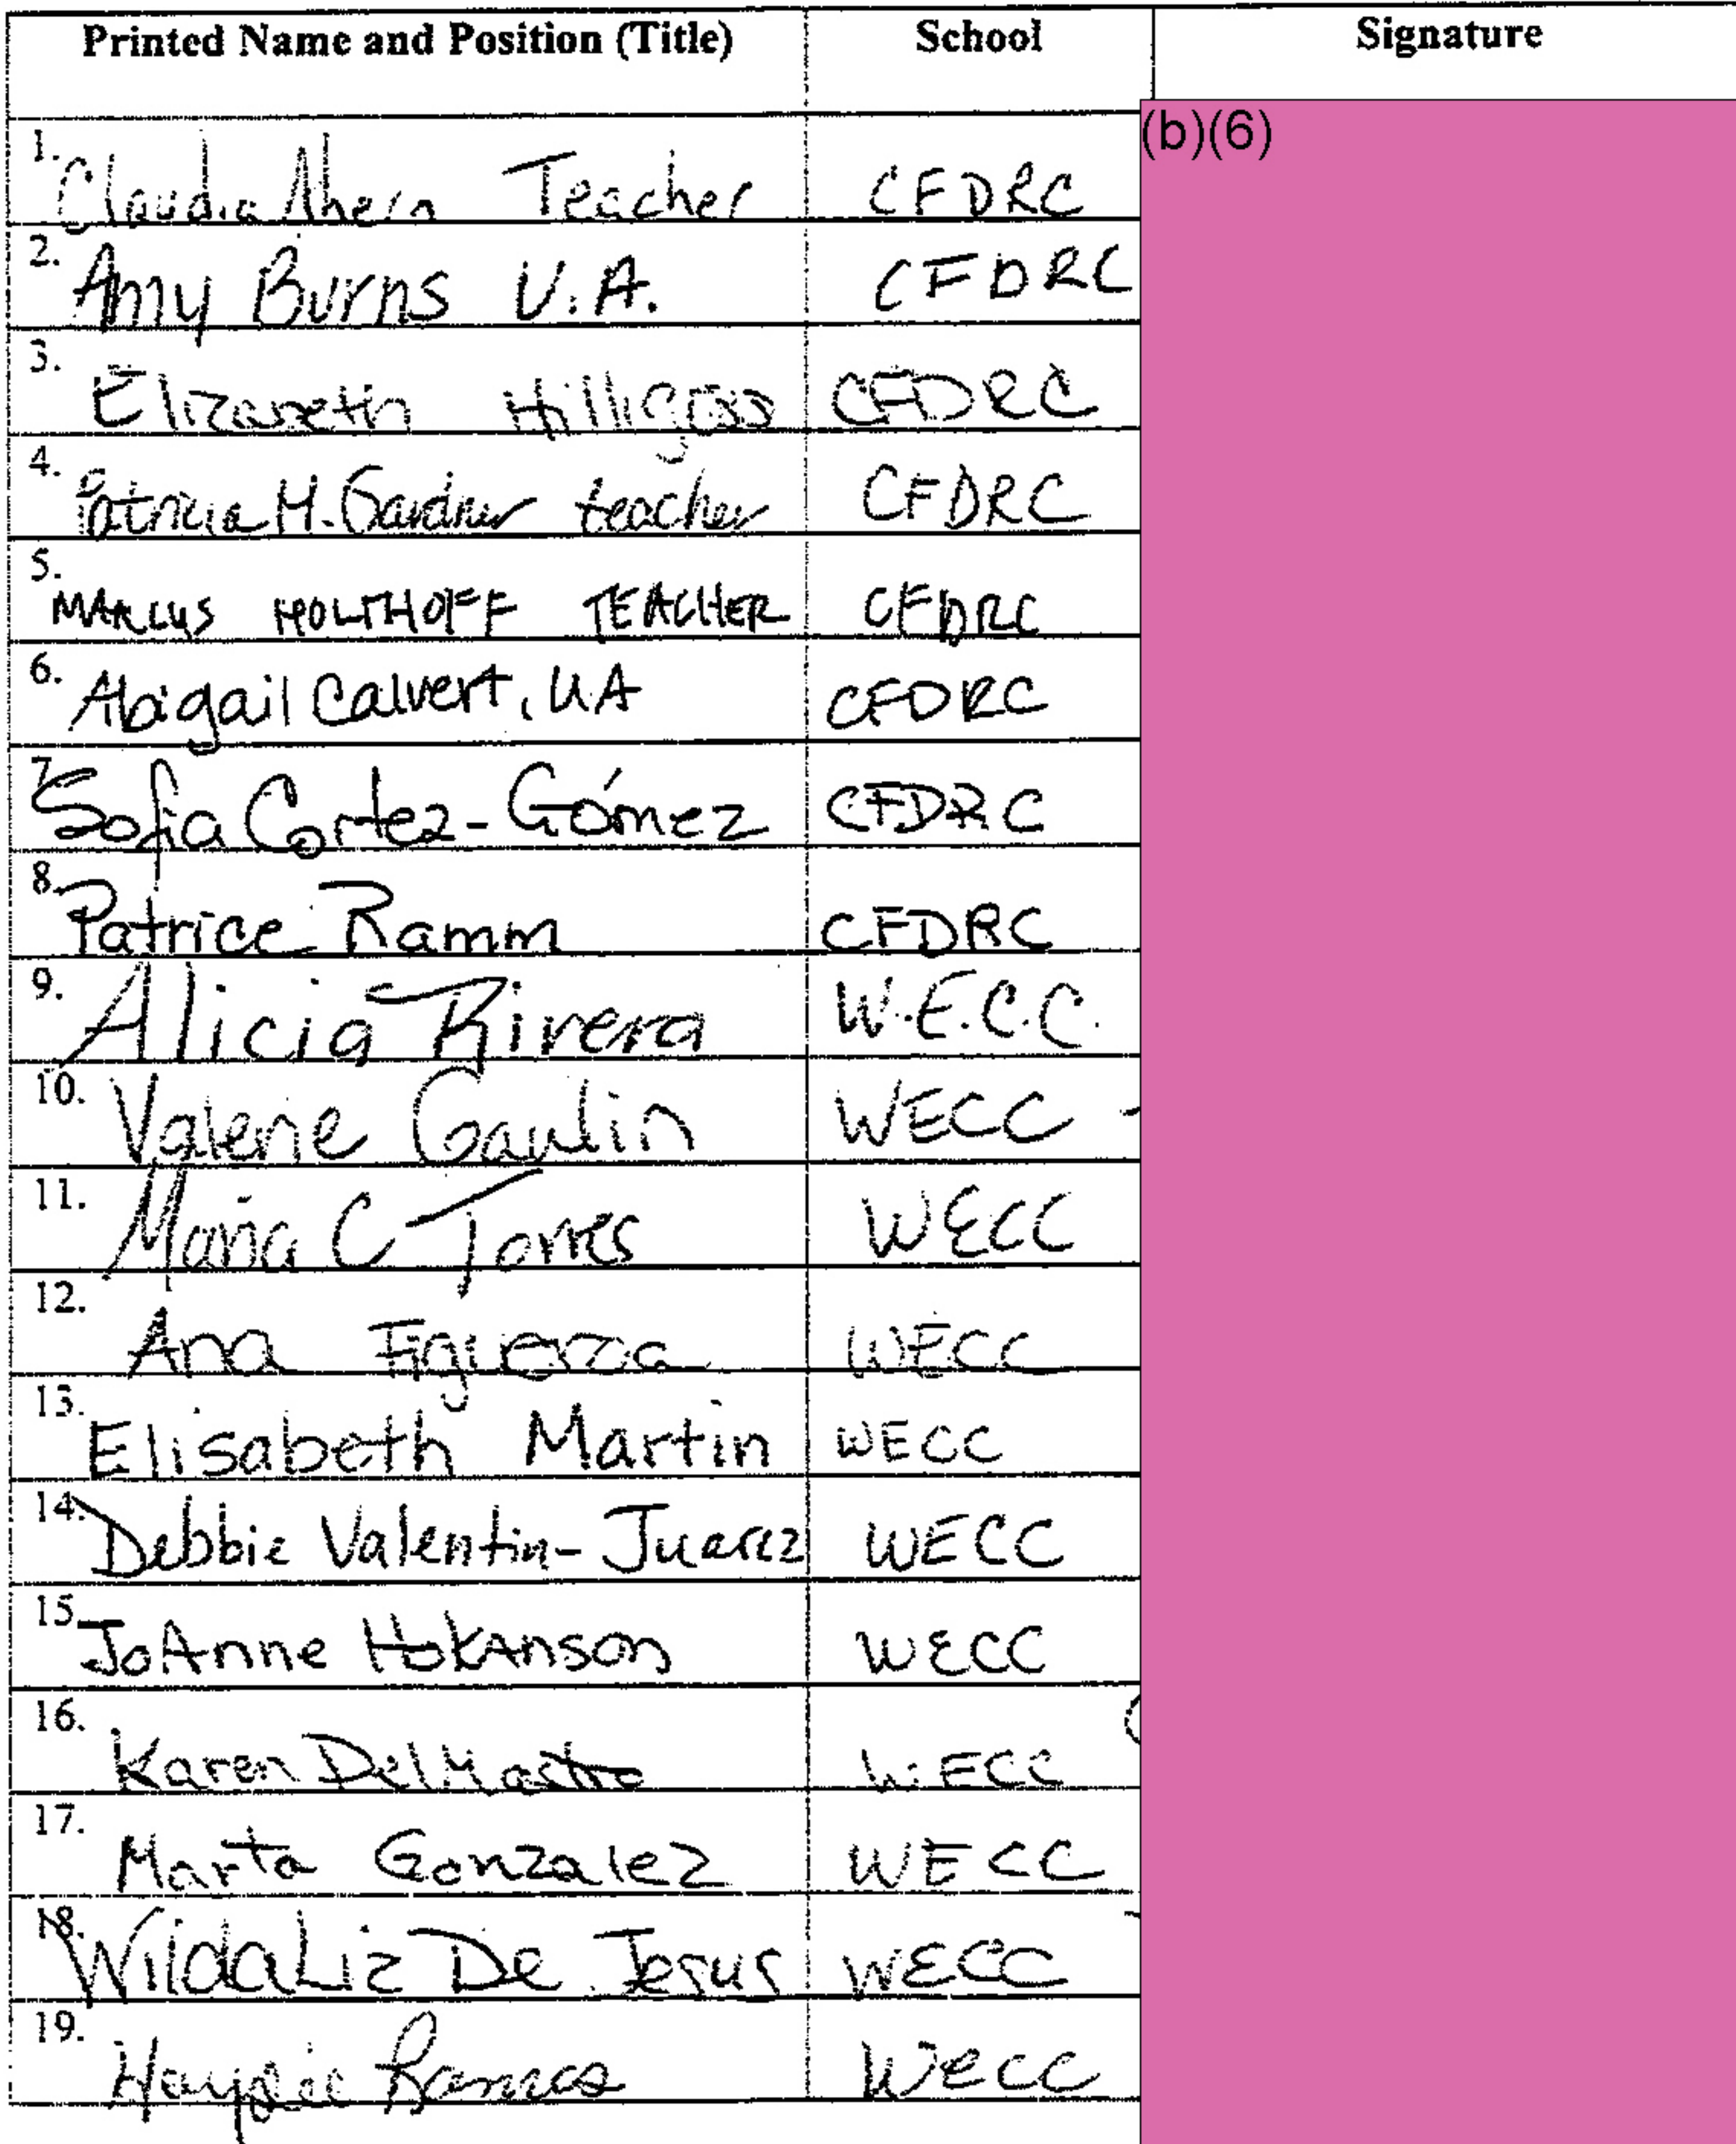 Printed Name and Position (Title) School Signature
(b)(6)
1. Claudia Ahern Teacher CFDRC
2. Amy Burns U.A. CFDRC
3. Elizabeth Hilligoss CFDRC
4. Patricia M. Gardner teacher CFDRC
5. MARCUS HOLTHOFF TEACHER CFDRC
6. Abigail Calvert, UA CFDRC
7. Sofia Cortez-Gómez CFDRC
8. Patrice Ramm CFDRC
9. Alicia Rivera W.E.C.C.
10. Valerie Gaulin WECC
11. Maria C Torres WECC
12. Ana Figueroa WECC
13. Elisabeth Martin WECC
14. Debbie Valentin-Juarez WECC
15. JoAnne Hokanson WECC
16. Karen DelMastro WECC
17. Marta Gonzalez WECC
18. WildaLiz De Jesus WECC
19. Ramos WECC